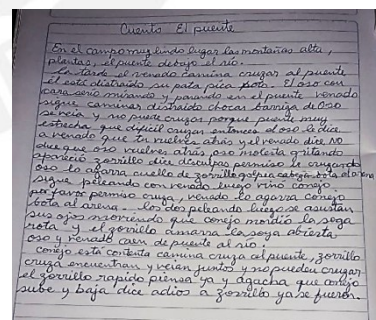 Cuento El puente
En el campo muy lindo lugar las montañas alta,
plantas, el puente debajo el río.
La tarde el venado camina cruzar al puente
él está distraído su pata pico poto. El oso con
cara serio mirando y parando en el puente venado
sigue caminar distraído chocar barriga de Oso
se veía y no puede cruzar porque puente muy
estrecha que difícil cruzar entonces el oso le dice
a venado que tu vuelves atrás y el venado dice NO
dice que oso vuelves atrás oso molesta gritando
apareció zorrillo dice disculpas permiso le cruzando
oso lo agarra cuello de zorrillo golpea cabeza bota al arena
sigue peleando con venado luego vino conejo
por favor permiso cruza, venado lo agarra conejo
bota al arena los dos peleando luego se asustan
sus ojos moviendo que conejo mordió la soga
rota y el zorrillo amarra la soga abierta
oso y venado caen de puente al río.
Conejo está contenta camina cruza al puente, zorrillo
cruza encuentran y veían juntos y no pueden cruzar
el zorrillo rapido piensa ya y agacha que conejo
sube y baja dice adiós a zorrillo ya se fueron.